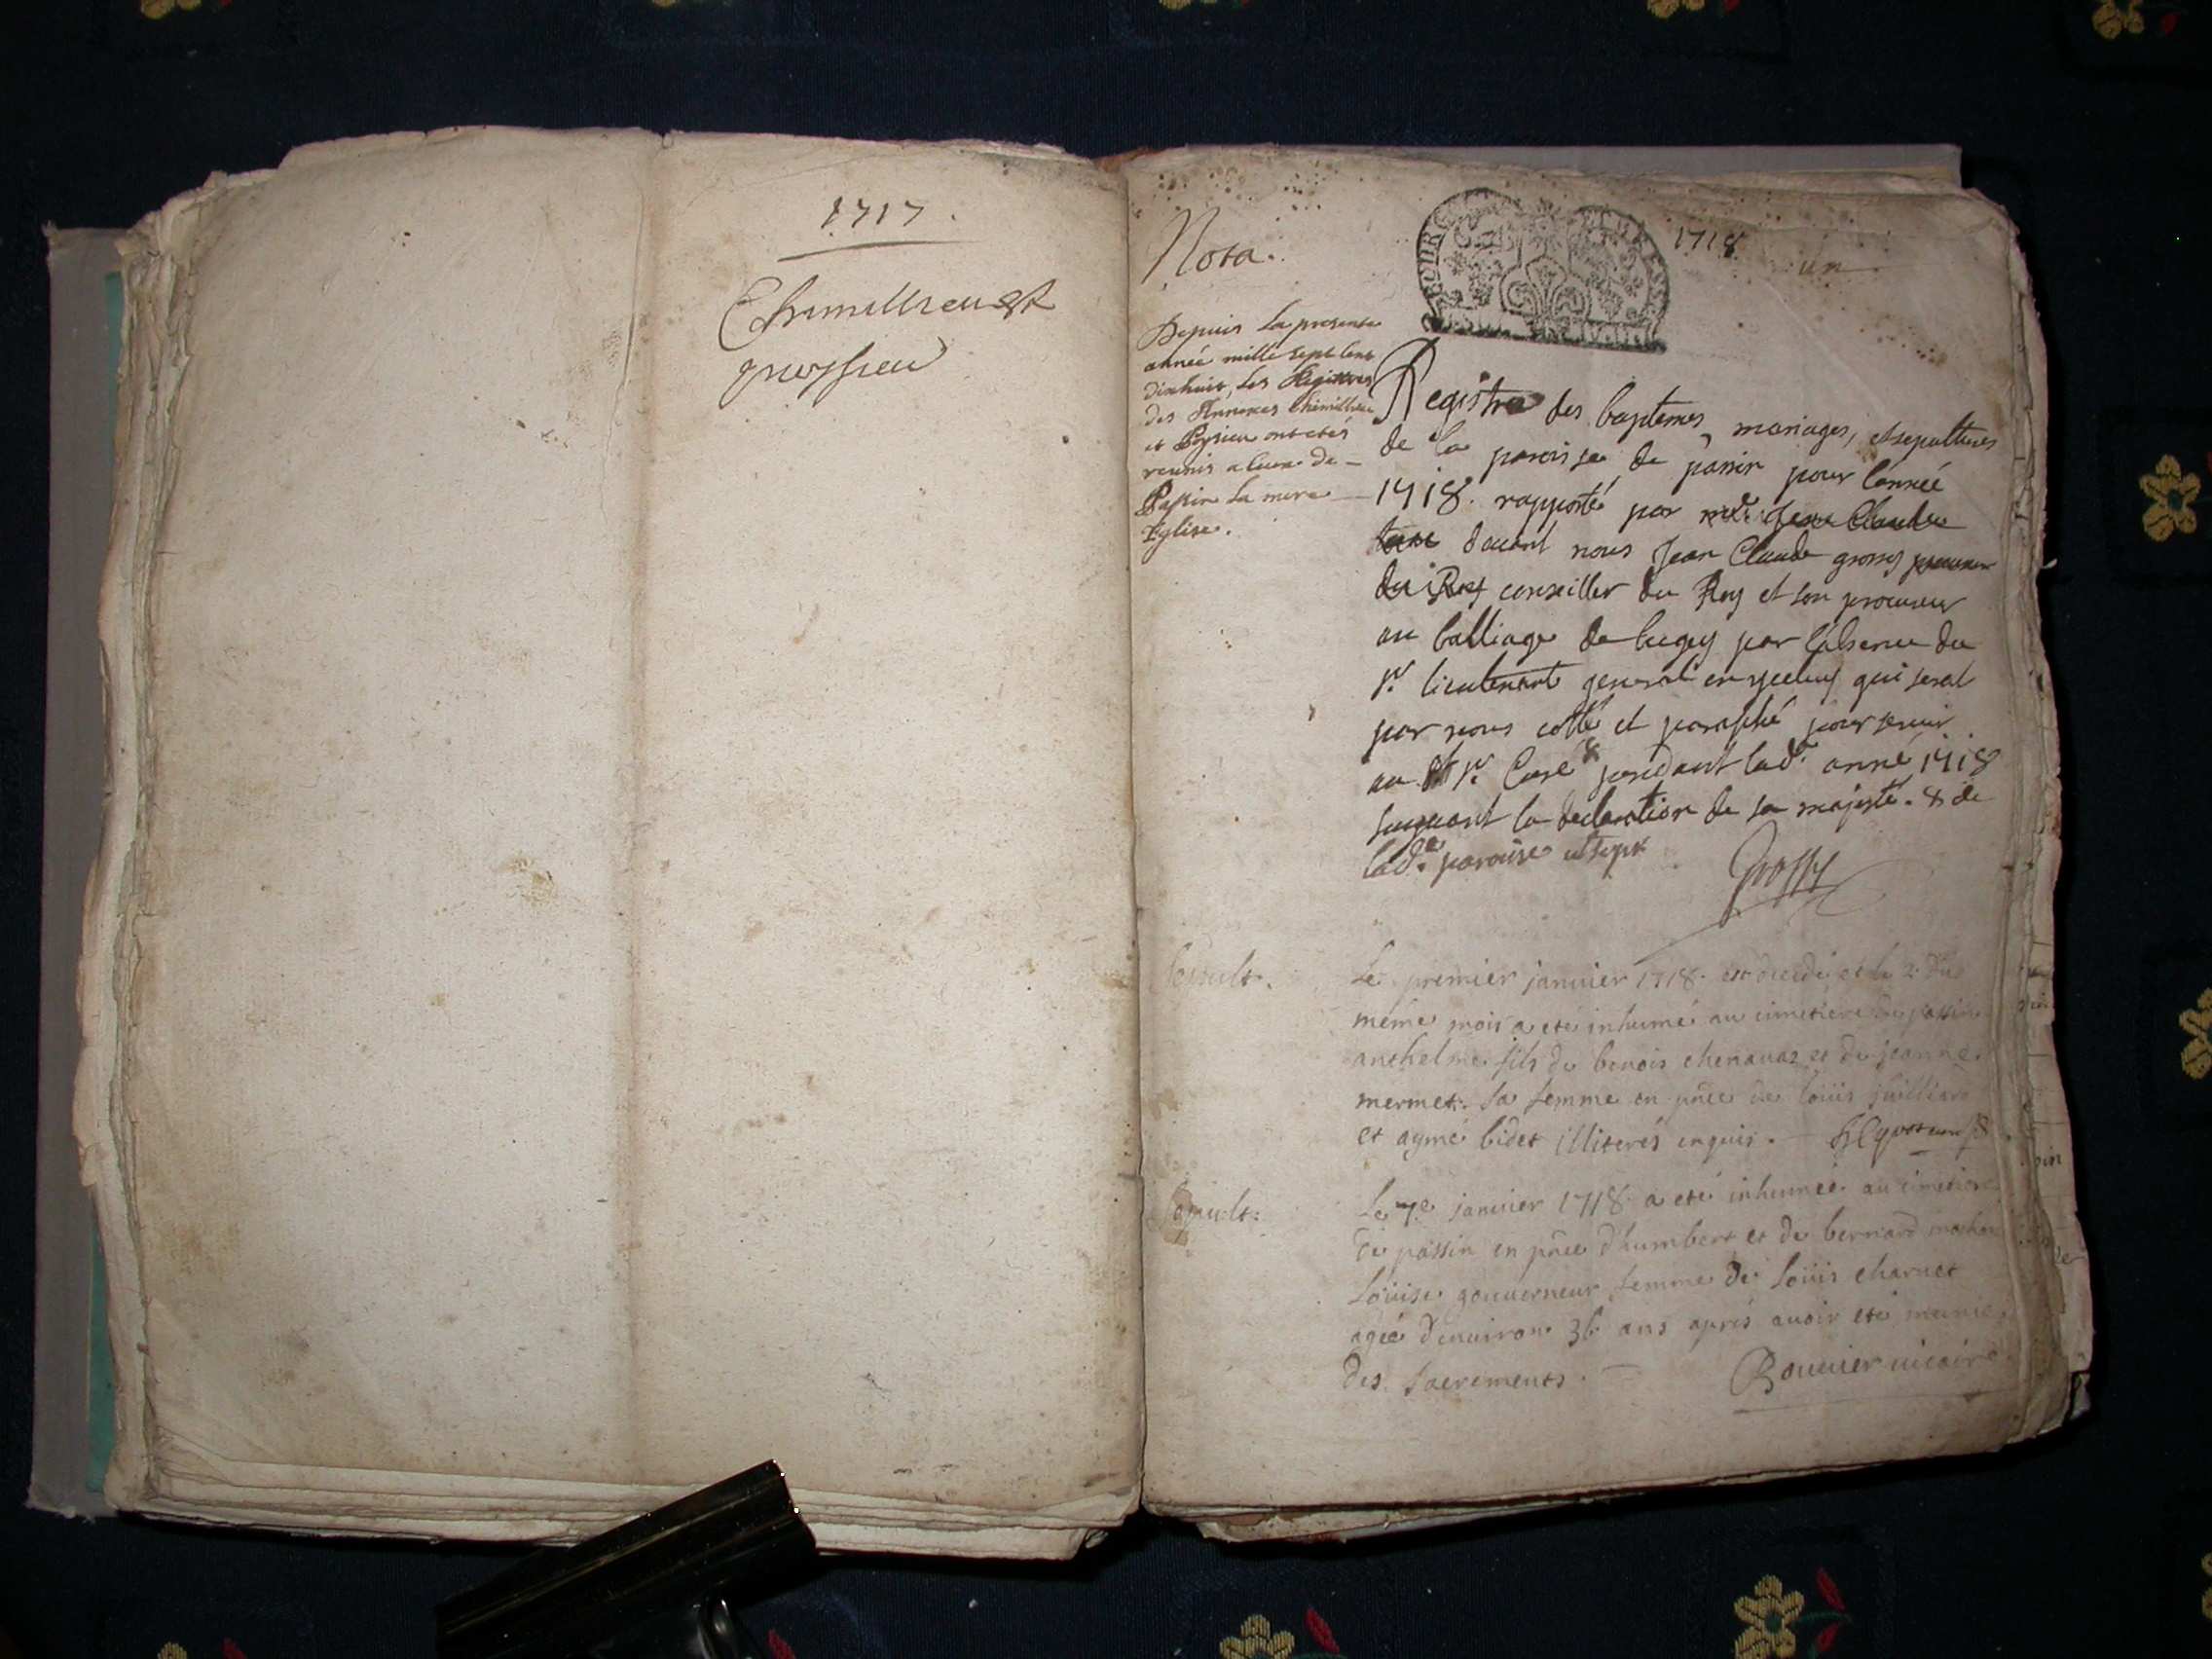 1717.
Chimillieu et
poeyssieu
1718
un
Nota.
Depuis la presente
année mille sept cent
dixhuit, les Registres
des Annexes Chimillieu
et Poysieu ont etés
reunis a ceux de
Passin la mere
Eglise.
Registre des baptemes, mariages, et sepultures
de la paroisse de passin pour l'année
1718. rapporté par Jean Claude
davant nous Jean Claude grossy procureur
du Roy conseiller du Roy et son procureur
au balliage de bugey par l'absence du
sr. lieutenant general qui serat
par nous cotté et paraphé pour servir
au sr. Curé pendant lad. anné 1718
suyvant la declaration de sa majesté. & de
lad.e paroisse
Grossy
Sepult.
Le premier janvier 1718. est decedé et le 2. du
même mois a eté inhumé au cimetiere de passin
anthelme fils de benois chenavaz et de jeanne
mermet. sa femme en pñce de loüis juilliard
et aymé bidet illiterés enquis.
Sepult:
Le 7e janvier 1718. a eté inhumée au cimetiere
de passin en pñce d'humbert et de bernard
Loüise gouverneur femme de Loüis charvet
agée d'environ 36 ans aprés avoir eté munie
des sacrements.
Bouvier vicaire